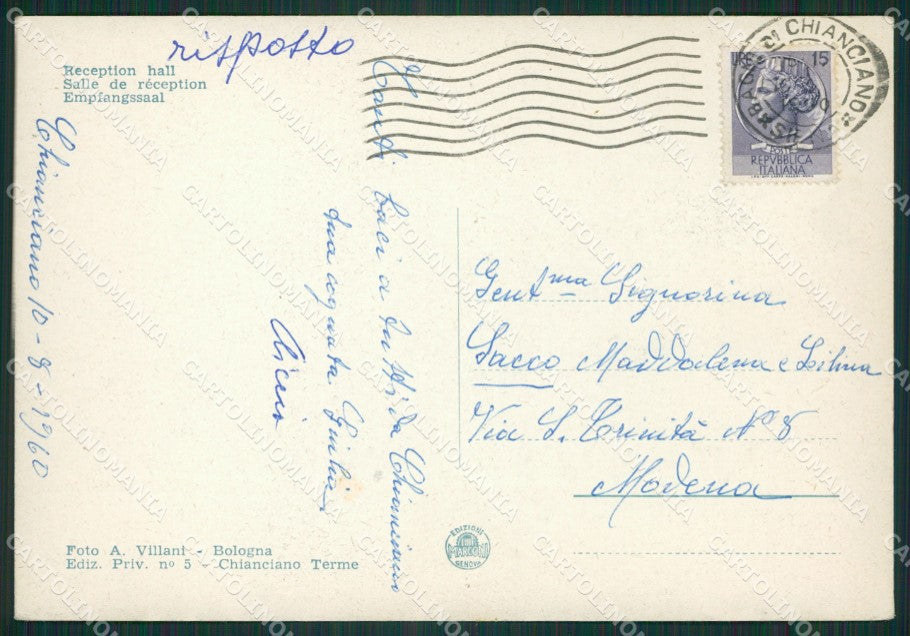 risposto
Reception hall
Salle de réception
Empfangssaal
Chianciano 10-8-1960
Tanti baci a tutti da Chianciano
tua cognata Giulia
LIRE 15
REPVBBLICA
ITALIANA
BAGNI DI CHIANCIANO
Gent.ma Signorina
Sacco Maddalena e
Via S. Trinità N° 8
Modena
Foto A. Villani - Bologna
Ediz. Priv. nº 5 - Chianciano Terme
EDIZIONI
MARCONI
GENOVA
CARTOLINOMANIA